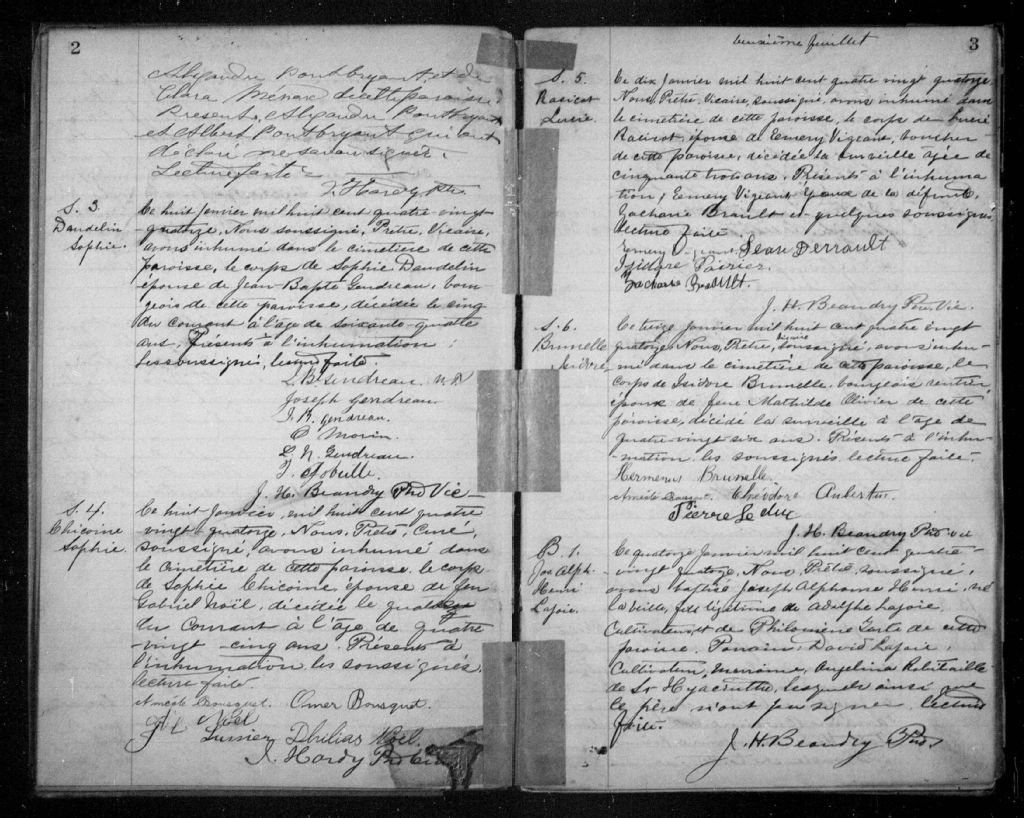 2
Alexandre Pontbryant et de
Clara Ménard de cette paroisse.
Présents, Alexandre Pontbryant
et Albert Pontbryant qui ont
déclaré ne savoir signer.
Lecture faite.
J. Hardy Ptre
S. 3.
Dandelin
Sophie.
Ce huit Janvier mil huit cent quatre-vingt-
quatorze, Nous soussigné, Prêtre, Vicaire,
avons inhumé dans le cimetière de cette
paroisse, le corps de Sophie Dandelin
épouse de Jean-Bapte Gendreau, bour-
geois de cette paroisse, décédée le cinq
du courant à l'âge de soixante-quatre
ans. Présents à l'inhumation :
les soussignés, lecture faite.
L. B. Gendreau
Joseph Gendreau.
J. R. Gendreau.
O Morin.
L. N. Gendreau.
J. H. Beaudry Ptre Vic-
S. 4.
Chicoine
Sophie
Ce huit Janvier, mil huit cent quatre
vingt quatorze, Nous, Prêtre, curé,
soussigné, avons inhumé dans
le cimetière de cette paroisse le corps
de Sophie Chicoine, épouse de feu
Gabriel Noël, décédée le quatre
du courant à l'âge de quatre
-vingt-cinq ans. Présents à
l'inhumation les soussignés,
lecture faite.
Bousquet. Omer Bousquet.
Noël
Lussier Philias Noël.
J. Hardy Ptre Curé
deuxième feuillet
3
S. 5.
Racicot
Lucie.
Ce dix Janvier mil huit cent quatre vingt quatorze
Nous, Prêtre, Vicaire, soussigné, avons inhumé dans
le cimetière de cette paroisse, le corps de Lucie
Racicot, épouse de Emery Vigeant, boucher
de cette paroisse, décédée la surveille âgée de
cinquante trois ans. Présents à l'inhuma-
tion, Emery Vigeant, époux de la défunte,
Zacharie Brault et quelques soussignés
lecture faite.
Emery Vigeant Jean Derrault
Isidore Poirier.
Zacharie Brault.
J. H. Beaudry Ptre. Vic.
S. 6.
Brunelle
Isidore
Ce treize Janvier mil huit cent quatre vingt
quatorze, Nous, Prêtre, vicaire soussigné, avons inhu-
mé dans le cimetière de cette paroisse, le
corps de Isidore Brunelle, bourgeois rentier
époux de feue Mathilde Olivier de cette
paroisse, décédé la surveille à l'âge de
quatre-vingt six ans. Présents à l'inhu-
-mation les soussignés lecture faite.
Herménas Brunelle
Bousquet Théodore Aubertin.
Pierre Leduc
J. H. Beaudry Ptre Vic
B. 1.
Jos. Alph.
Henri
Lajoie.
Ce quatorze Janvier mil huit cent quatre-
vingt quatorze, Nous, Prêtre, soussigné,
avons baptisé Joseph Alphonse Henri, né
la veille, fils légitime de Adolphe Lajoie,
cultivateur, et de Philomène de cette
paroisse. Parrain, David Lajoie,
cultivateur, marraine, Angelina Robitaille
de St Hyacinthe, lesquels ainsi que
le père n'ont pu signer, lecture
faite.
J. H. Beaudry Ptre